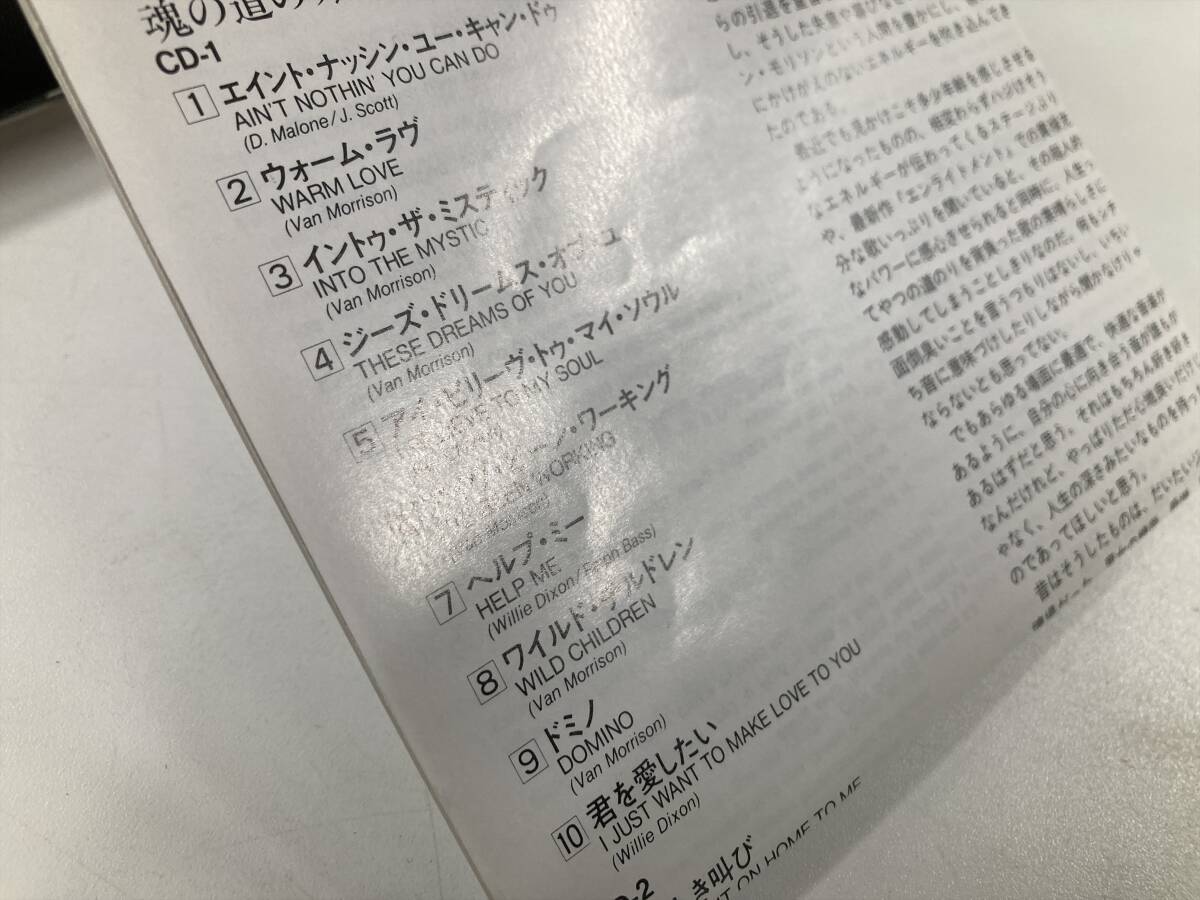 魂の道の
CD-1
1 エイント・ナッシン・ユー・キャン・ドゥ
AIN'T NOTHIN' YOU CAN DO
(D. Malone/J. Scott)
2 ウォーム・ラヴ
WARM LOVE
(Van Morrison)
3 イントゥ・ザ・ミスティック
INTO THE MYSTIC
(Van Morrison)
4 ジーズ・ドリームス・オブ・ユー
THESE DREAMS OF YOU
(Van Morrison)
5 アイ・ビリーヴ・トゥ・マイ・ソウル
TO MY SOUL
ワーキング
WORKING
7 ヘルプ・ミー
HELP ME
(Willie Dixon/ Bass)
8 ワイルド・チルドレン
WILD CHILDREN
(Van Morrison)
9 ドミノ
DOMINO
(Van Morrison)
10 君を愛したい
I JUST WANT TO MAKE LOVE TO YOU
(Willie Dixon)
-2
き叫び
ON HOME TO ME
し、そうした失意や喜びなど
ン・モリソンという人間を豊かにし、
にかけがえのないエネルギーを吹き込んでき
たのである。
最近でも見かけこそ多少年齢を感じさせる
ようになったものの、相変わらずハジけそう
なエネルギーが伝わってくるステージぶり
や、最新作『エンライトメント』での貫禄充
分な歌いっぷりを聞いていると、その個人的
なパワーに感心させられると同時に、人生っ
てやつの道のりを背負った歌の素晴らしさに
感動してしまうことしきりなのだ。何もシチ
面倒臭いことを言うつもりはないし、いちい
ち音に意味づけしたりしながら聞かなけりゃ
ならないとも思ってない。
でもあらゆる場面に最適で、快適な音楽が
あるように、自分の心に向き合う音が誰もが
あるはずだと思う。それはもちろん好き好き
なんだけれど、やっぱりただ心地良いだけ
ゃなく、人生の深さみたいなものを持っ
のであってほしいと思う。
昔はそうしたものは、だいたい